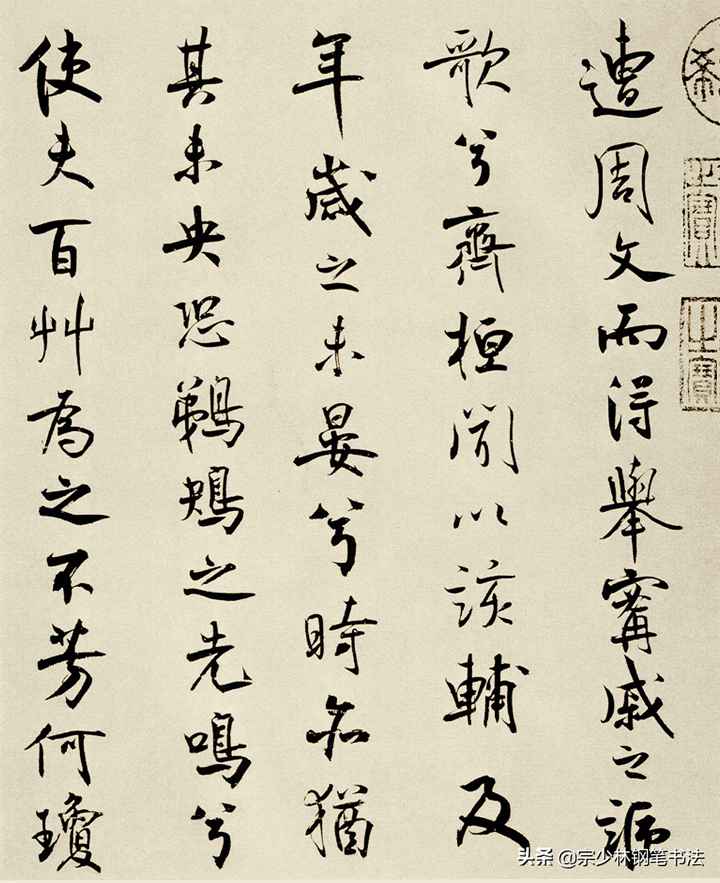 遭周文而得舉寗戚之謳
歌兮齊桓聞以該輔及
年歲之未晏兮時亦猶
其未央恐鵜鴂之先鳴兮
使夫百艸為之不芳何瓊
之寶
头条 @宗少林钢笔书法